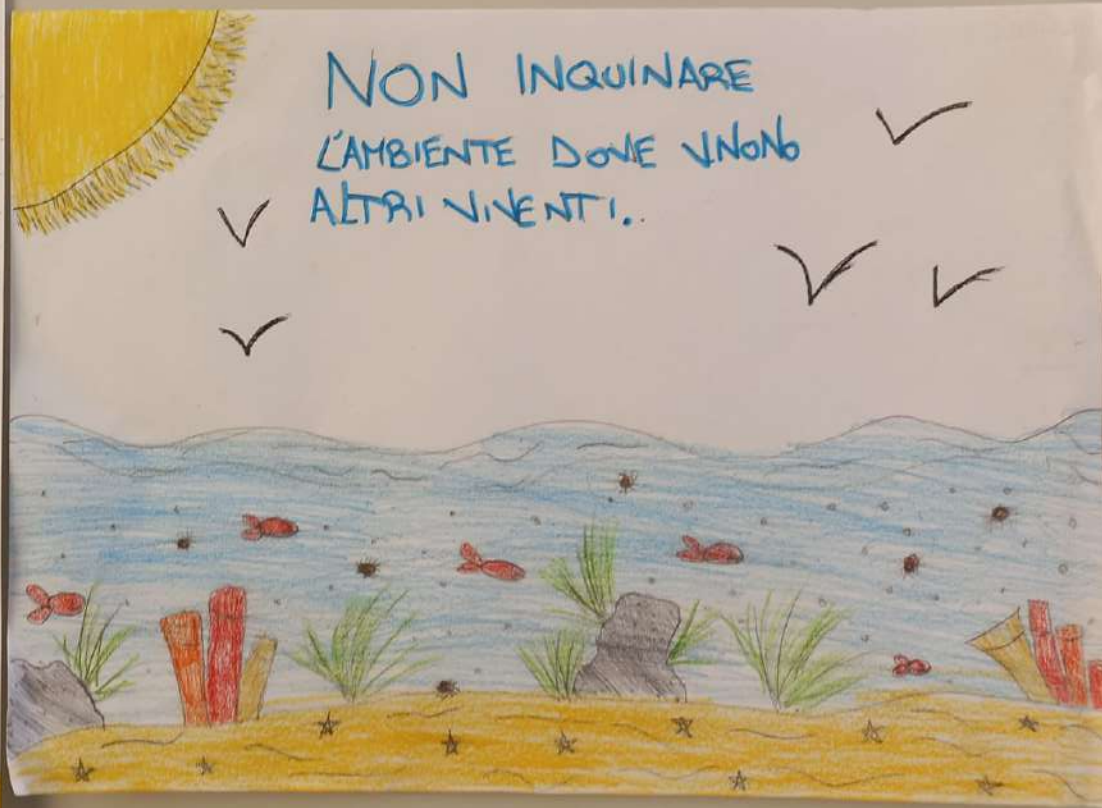 NON INQUINARE
L'AMBIENTE DOVE VIVONO
ALTRI VIVENTI..